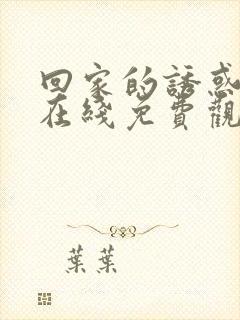 回家的誘惑
在綫免費觀
葉葉